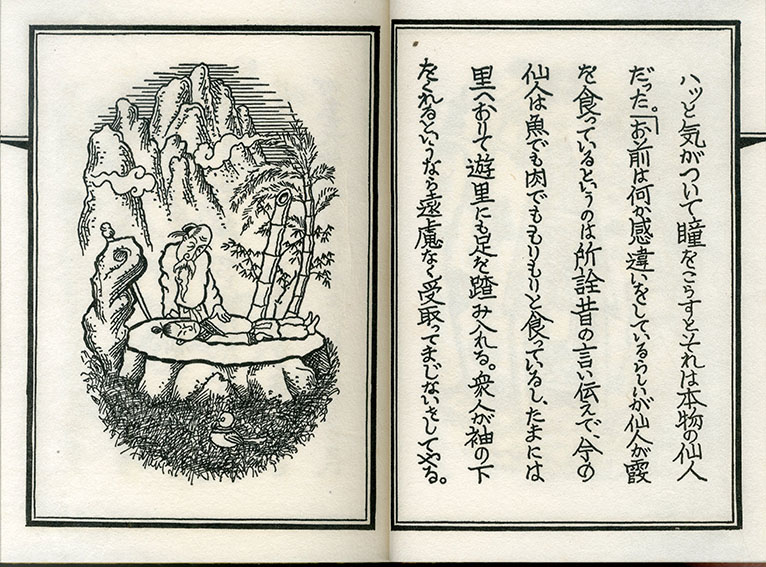 ハッと気がついて瞳をこらすとそれは本物の仙人
だった。「お前は何か感違いをしているらしいが仙人が霞
を食っているというのは所詮昔の言い伝えで、今の
仙人は魚でも肉でももりもりと食っているし、たまには
里へおりて遊里にも足を踏み入れる。衆人が袖の下
をくれるというなら遠慮なく受取ってまじないをしてやる。